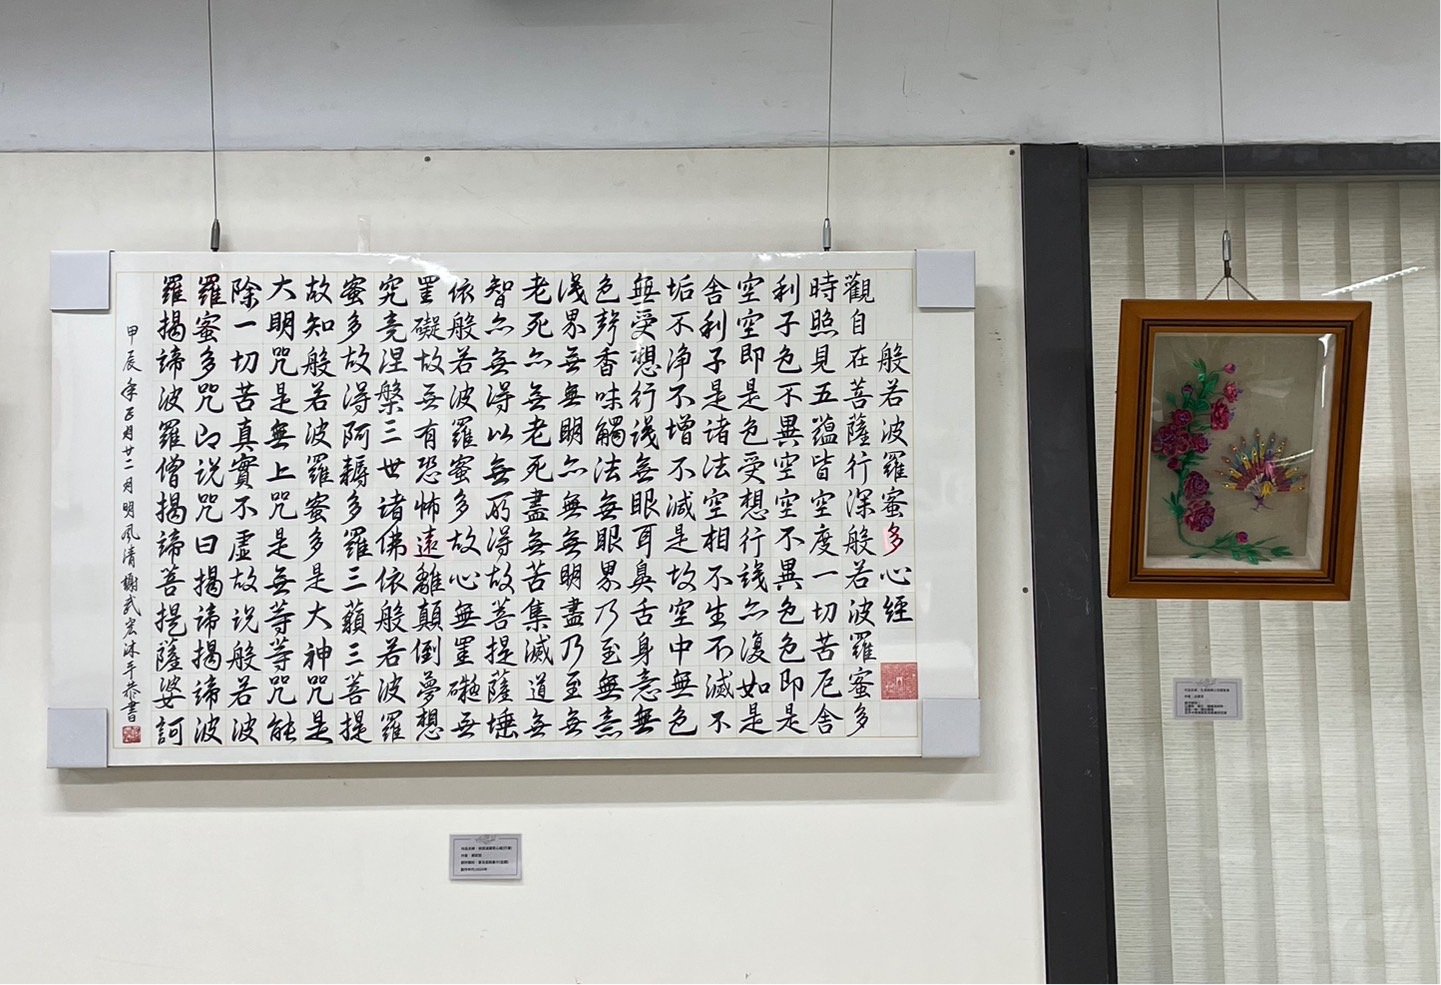 般若波羅蜜多心經
觀自在菩薩行深般若波羅蜜多
時照見五蘊皆空度一切苦厄舍
利子色不異空空不異色色即是
空空即是色受想行識亦復如是
舍利子是諸法空相不生不滅不
垢不淨不增不減是故空中無色
無受想行識無眼耳鼻舌身意無
色聲香味觸法無眼界乃至無意
識界無無明亦無無明盡乃至無
老死亦無老死盡無苦集滅道無
智亦無得以無所得故菩提薩埵
依般若波羅蜜多故心無罣礙無
罣礙故無有恐怖遠離顛倒夢想
究竟涅槃三世諸佛依般若波羅
蜜多故得阿耨多羅三藐三菩提
故知般若波羅蜜多是大神咒是
大明咒是無上咒是無等等咒能
除一切苦真實不虛故說般若波
羅蜜多咒即說咒曰揭諦揭諦波
羅揭諦波羅僧揭諦菩提薩婆訶
甲辰年正月廿二月明風清謝武宏沐手恭書